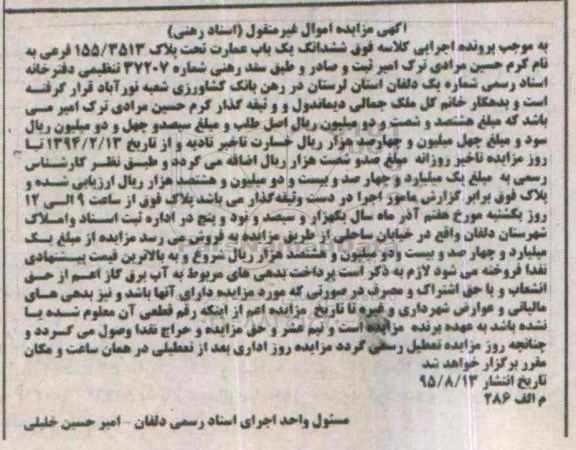 آگهی مزایده اموال غیرمنقول (اسناد رهنی)
به موجب پرونده اجرایی کلاسه فوق ششدانگ یک باب عمارت تحت پلاک ۱۵۵/۳۵۱۳ فرعی به
نام کرم حسین مرادی ترک امیر ثبت و صادر و طبق سند رهنی شماره ۳۷۲۰۷ تنظیمی دفترخانه
اسناد رسمی شماره یک دلفان استان لرستان در رهن بانک کشاورزی شعبه نورآباد قرار گرفته
است و بدهکار خانم گل ملک جمالی دیماندول و و ثیقه گذار کرم حسین مرادی ترک امیر می
باشد که مبلغ هشتصد و شصت و دو میلیون ریال اصل طلب و مبلغ سیصدو چهل و دو میلیون ریال
سود و مبلغ چهل میلیون و چهارصد هزار ریال خسارت تاخیر تادیه و از تاریخ ۱۳۹۴/۲/۱۳ تا
روز مزایده تاخیر روزانه مبلغ صدو شصت هزار ریال اضافه می گردد و طبق نظر کارشناس
رسمی به مبلغ یک میلیارد و چهار صد و بیست و دو میلیون و هشتصد هزار ریال ارزیابی شده و
پلاک فوق برابر گزارش مامور اجرا در دست وثیقه‌گذار می باشد پلاک فوق از ساعت ۹ الی ۱۲
روز یکشنبه مورخ هفتم آذر ماه سال یکهزار و سیصد و نود و پنج در اداره ثبت اسناد واملاک
شهرستان دلفان واقع در خیابان ساحلی از طریق مزایده به فروش می رسد مزایده از مبلغ یک
میلیارد و چهار صد و بیست ودو میلیون و هشتصد هزار ریال شروع و به بالاترین قیمت پیشنهادی
نقدا فروخته می شود لازم به ذکر است پرداخت بدهی های مربوط به آب برق گاز اعم از حق
انشعاب و یا حق اشتراک و مصرف در صورتی که مورد مزایده دارای آنها باشد و نیز بدهی های
مالیاتی و عوارض شهرداری و غیره تا تاریخ مزایده اعم از اینکه رقم قطعی آن معلوم شده یا
نشده باشد به عهده برنده مزایده است و نیم عشر و حق مزایده و حراج نقدا وصول می گردد و
چنانچه روز مزایده تعطیل رسمی گردد مزایده روز اداری بعد از تعطیلی در همان ساعت و مکان
مقرر برگزار خواهد شد
تاریخ انتشار ۹۵/۸/۱۳
م الف ۲۸۶
مسئول واحد اجرای اسناد رسمی دلفان - امیر حسین خلیلی